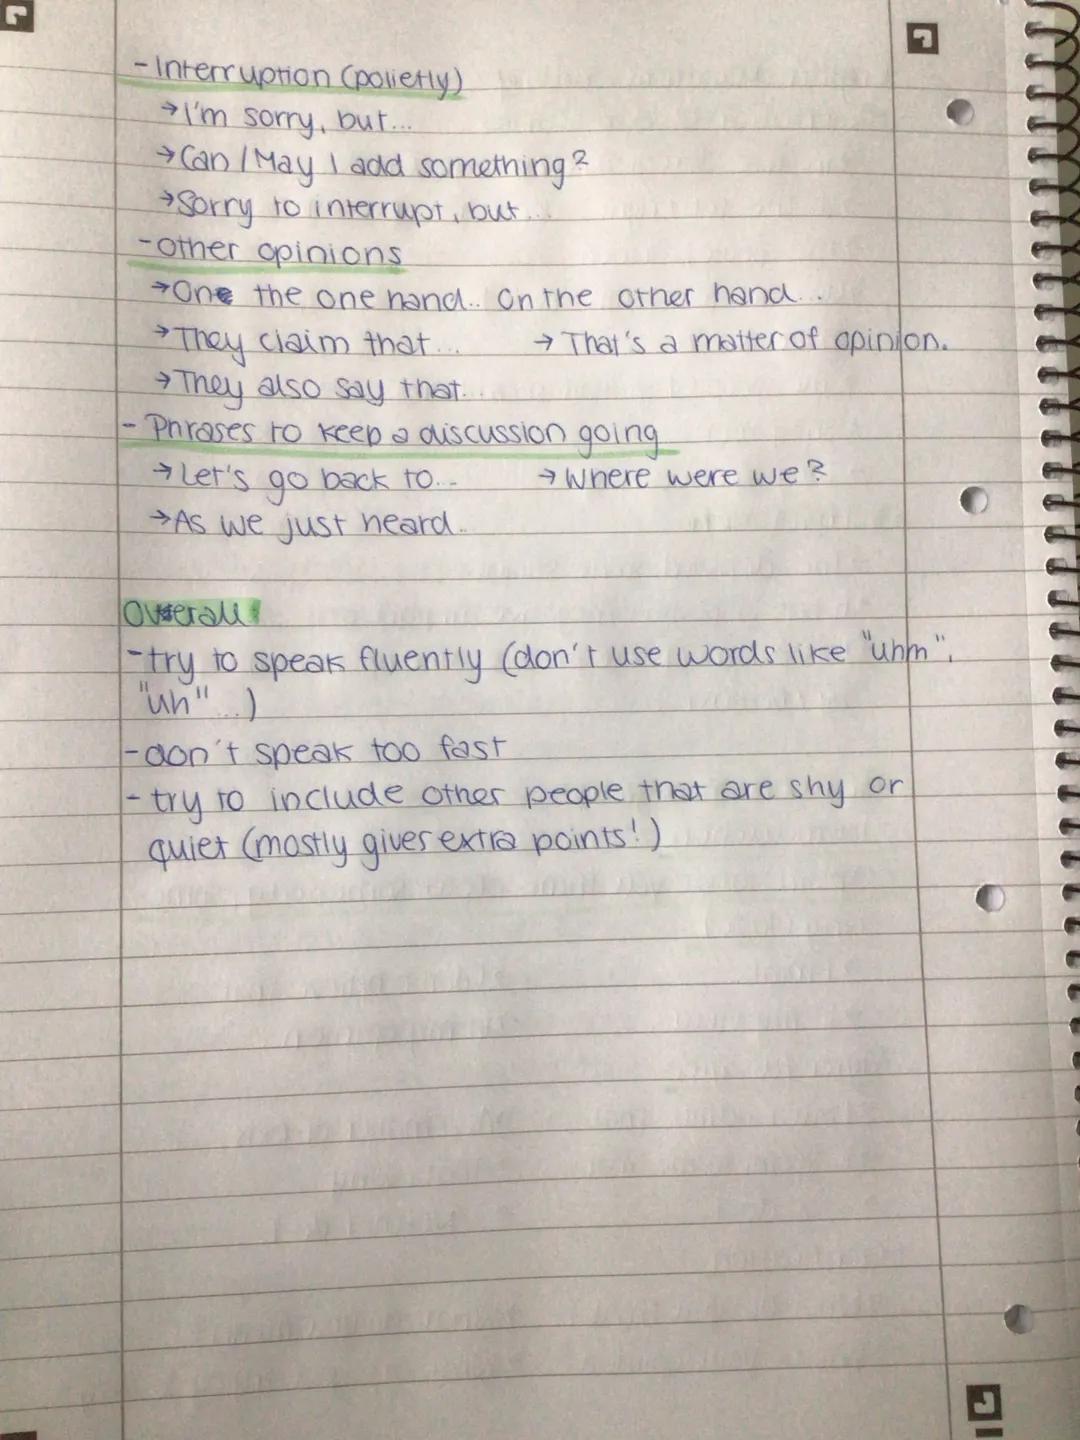 - Interruption (polietly)
→ I'm sorry, but...
→ Can / May I add something?
→ Sorry to interrupt, but...
- Other opinions
→ One the one hand.. On the other hand...
→ They claim that... → That's a matter of opinion.
→ They also say that...
- Phrases to keep a discussion going
→ Let's go back to... → Where were we?
→ As we just heard..
Overall:
- try to speak fluently (don't use words like "uhm",
"uh"...)
- don't speak too fast
- try to include other people that are shy or
quiet (mostly gives extra points!)